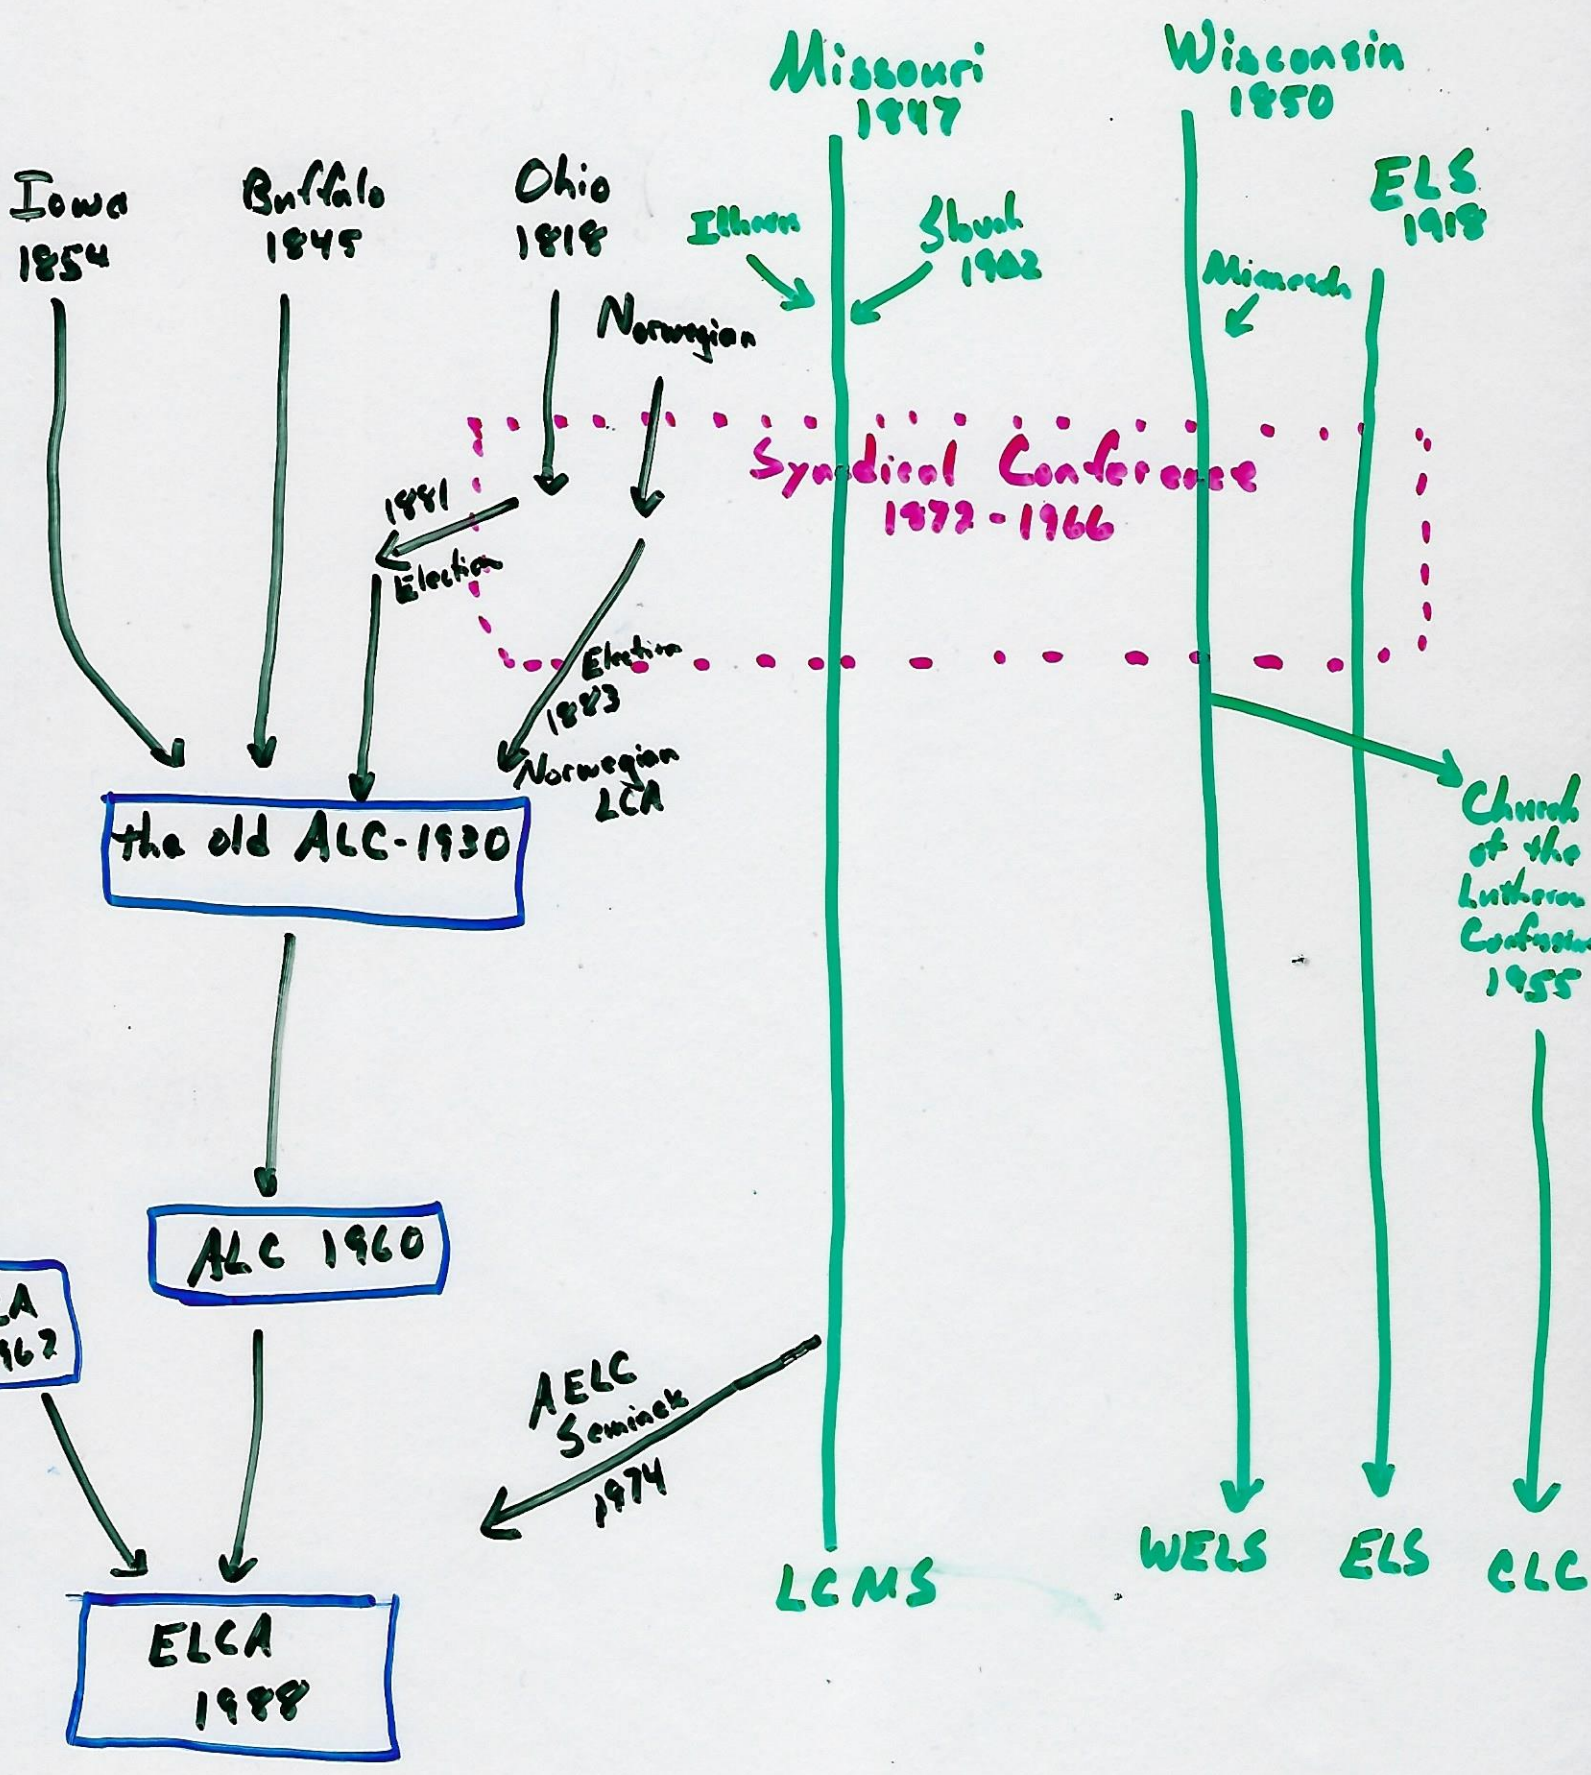 Missouri
1847
Wisconsin
1850
Iowa
1854
Buffalo
1845
Ohio
1818
ELS
1918
Slovak
1902
Norwegian
Synodical Conference
1872-1966
1881
Election
Election
1883
Norwegian
LCA
the old ALC-1930
Church
of the
Lutheran
1955
ALC 1960
LA
962
AELC
Seminex
1974
LCMS
WELS
ELS
CLC
ELCA
1988